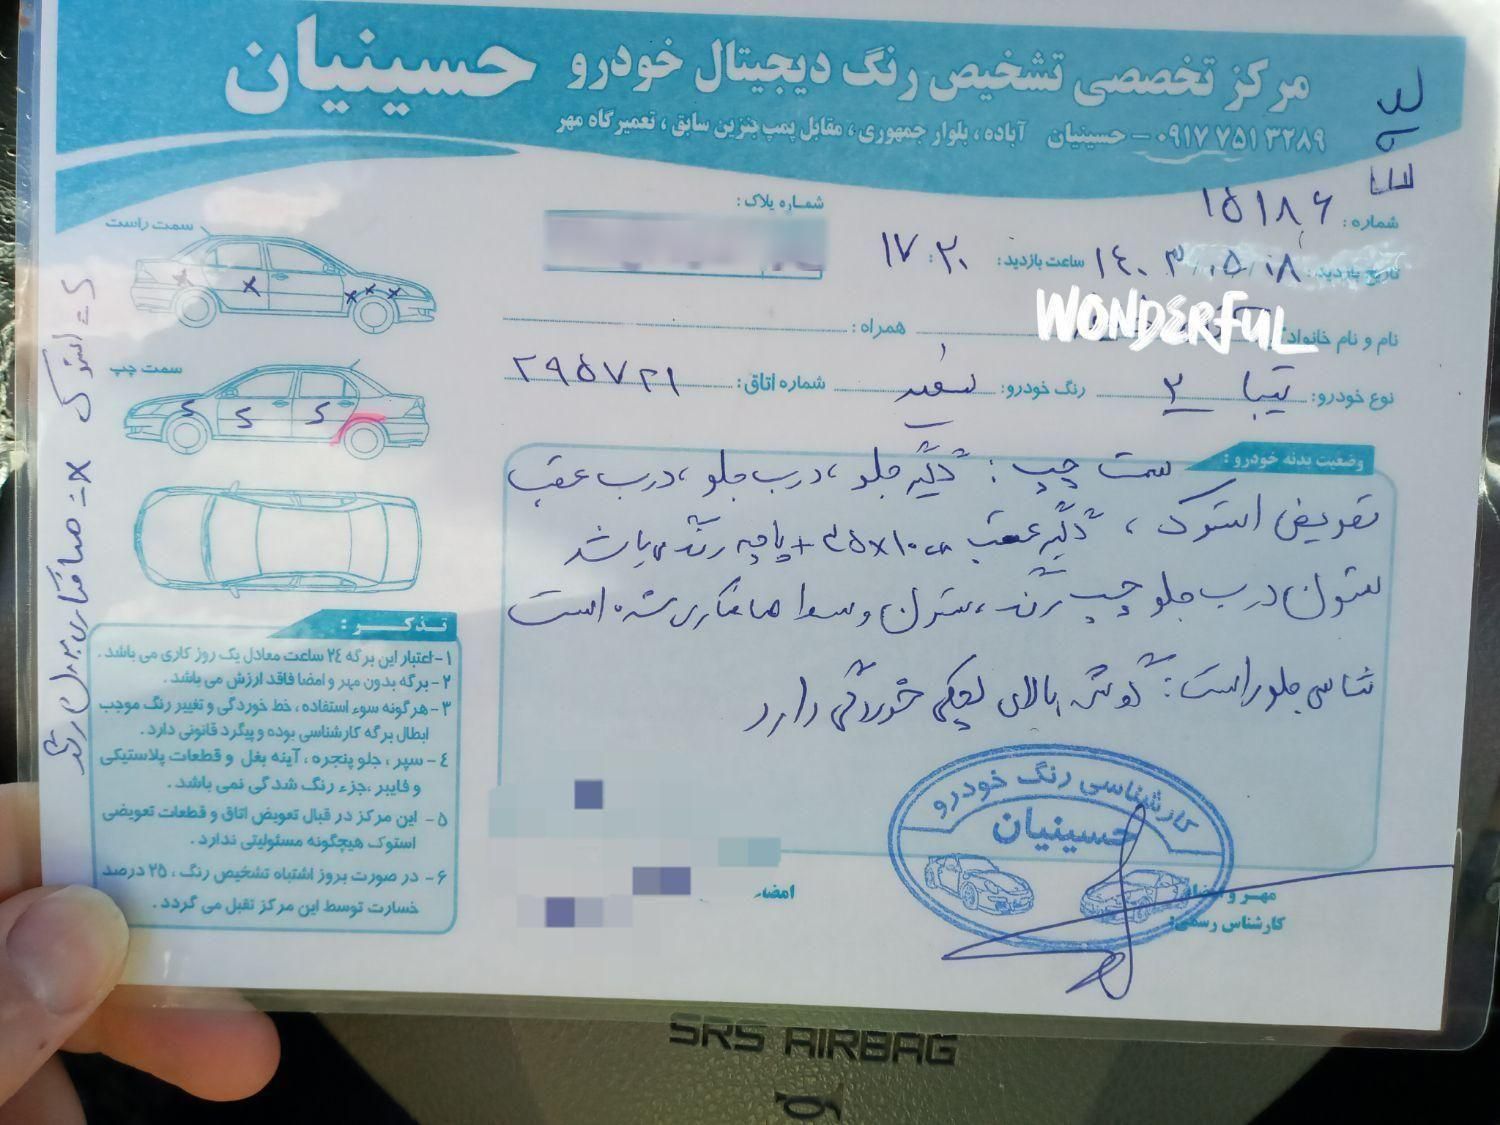 مرکز تخصصی تشخیص رنگ دیجیتال خودرو حسینیان
۰۹۱۷ ۷۵۱ ۳۲۸۹ – حسینیان آباده ، بلوار جمهوری ، مقابل پمپ بنزین سابق ، تعمیرگاه مهر
شماره : ۱۵۱۸۶
شماره پلاک :
تاریخ بازدید : ۱۴۰۳/۰۵/۰۸ ساعت بازدید : ۱۷:۲۰
نام و نام خانواد
WONDERFUL
همراه :
نوع خودرو : تیبا ۲ رنگ خودرو : سفید شماره اتاق : ۲۹۵۷۲۱
وضعیت بدنه خودرو :
سمت چپ : گلگیر جلو ، درب جلو ، درب عقب
تعویض استوک ، گلگیر عقب ۲۵x۱۰cm + پاچه رنگ می باشد
ستون درب جلو چپ رنگ ، ستون وسط صافکاری شده است
شاسی جلو راست : گوش بالای لچکی خوردگی دارد
سمت راست
x x x x x
سمت چپ
S S S
S = استوک
x = صافکاری بدون رنگ
تذکر :
۱- اعتبار این برگه ۲۴ ساعت معادل یک روز کاری می باشد .
۲- برگه بدون مهر و امضا فاقد ارزش می باشد .
۳- هرگونه سوء استفاده ، خط خوردگی و تغییر رنگ موجب
ابطال برگه کارشناسی بوده و پیگرد قانونی دارد .
۴- سپر ، جلو پنجره ، آینه بغل و قطعات پلاستیکی
و فایبر ،جزء رنگ شدگی نمی باشد .
۵- این مرکز در قبال تعویض اتاق و قطعات تعویضی
استوک هیچگونه مسئولیتی ندارد .
۶- در صورت بروز اشتباه تشخیص رنگ ، ۲۵ درصد
خسارت توسط این مرکز تقبل می گردد .
امضاء
مهر و امضاء
کارشناس رسمی:
کارشناسی رنگ خودرو
حسینیان
SRS AIRBAG